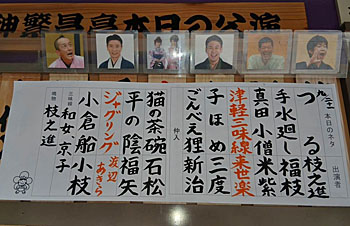 神戸繁昌亭本日の公演
九・二二
本日のネタ
出演者
つる 枝之進
手水廻し 福枝
真田小僧 米紫
津軽三味線 来世楽
子ほめ 三度
ごんべえ狸 新治
仲入
猫の茶碗 石松
平の陰 福矢
ジャグリング 渡辺あきら
小倉船 小枝
三味線 和女 京子
枝之進